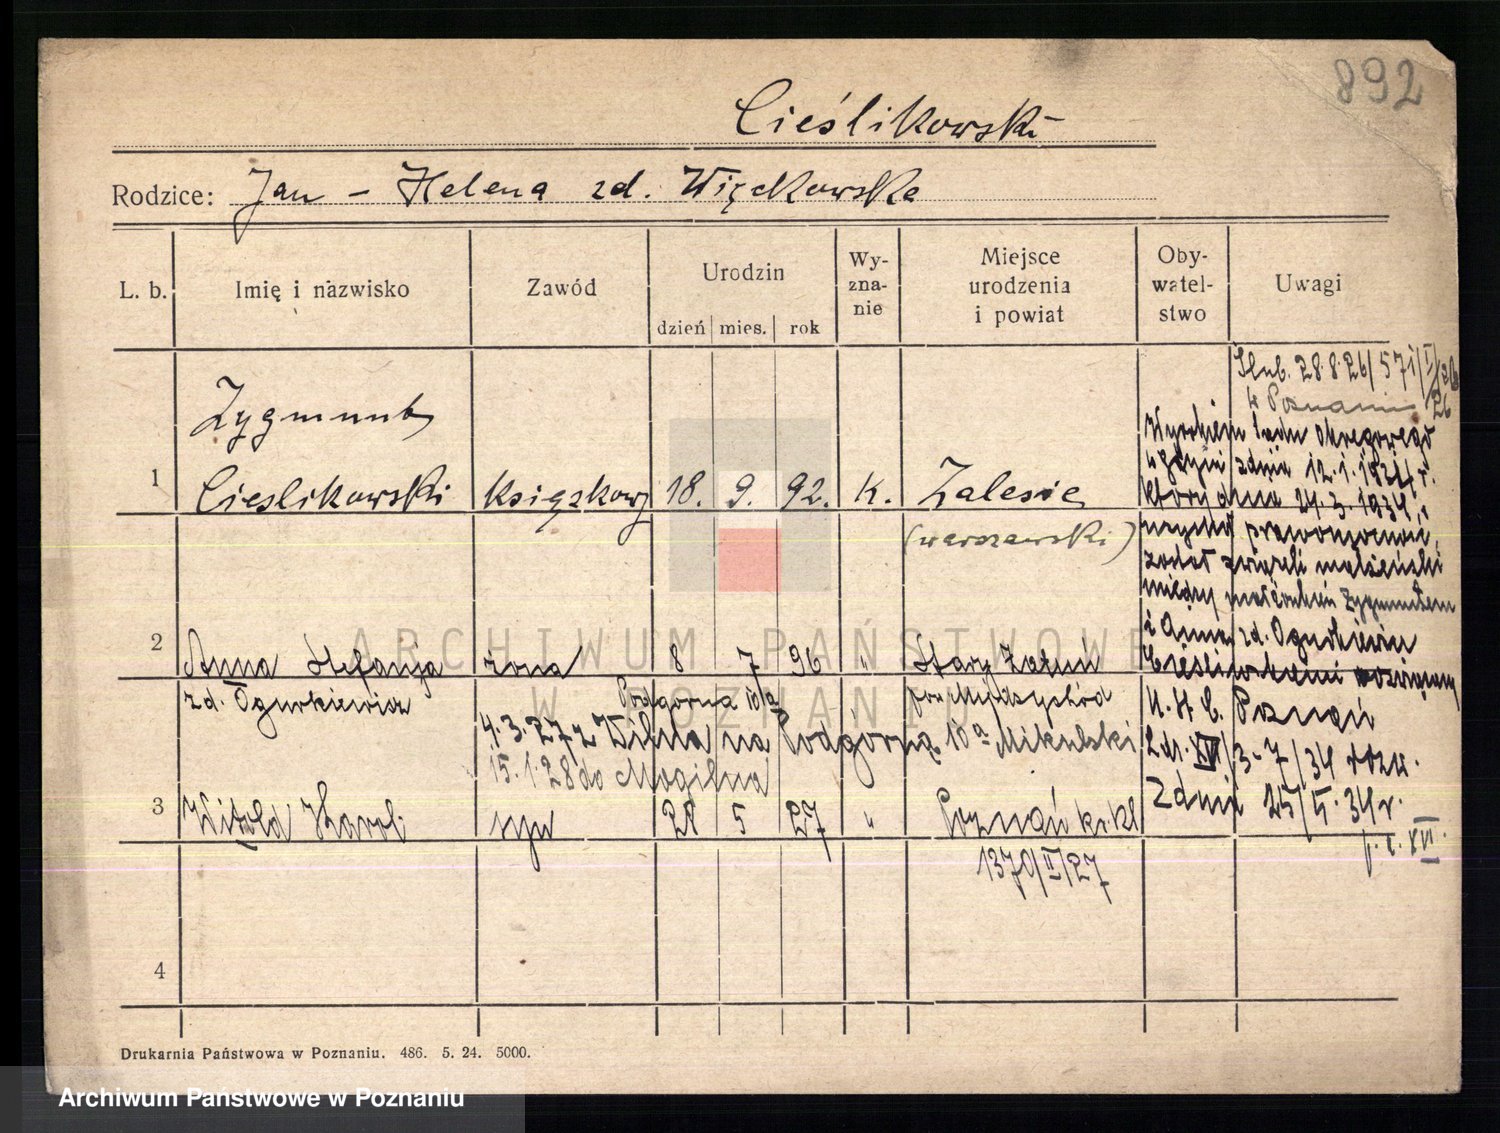 892
Cieślikowski
Rodzice: Jan - Helena zd. Więckowska
L. b.
Imię i nazwisko
Zawód
Urodzin
dzień mies. rok
Wy-
zna-
nie
Miejsce
urodzenia
i powiat
Oby-
watel-
stwo
Uwagi
Ślub. 28.8.26/571/I/26
w Poznaniu
Zygmunt
1 Cieslikowski Księgkowy 18. 9. 92. K. Zalesie
(warszawski)
Wyrokiem Sądu Okręgowego
w Gdyni z dnia 12.1.1934 r.
który dnia 24.3.1934 r.
uzyskał prawomocność,
został związek małżeński
między małżonkiem Zygmuntem
i Anną zd. Ogurkiewicz
Cieślikowskimi rozwiązany
2 Anna Stefanja żona 8 7 96 " Stary Zatum
zd. Ogurkiewicz Podgórna 10a pow. Międzychód
4.3.27 z Wilna na Podgórną 10a Mikulski
15.1.28 do Mogilna
U. St. C. Poznań
L.dz. XVI/3-7/34 rozw.
Z dnia 25/5.34 r.
XVI.
3 Witold Karol syn 28 5 27 " Poznań
1370/II/27
4
Drukarnia Państwowa w Poznaniu. 486. 5. 24. 5000.
ARCHIWUM PAŃSTWOWE
W POZNANIU
Archiwum Państwowe w Poznaniu